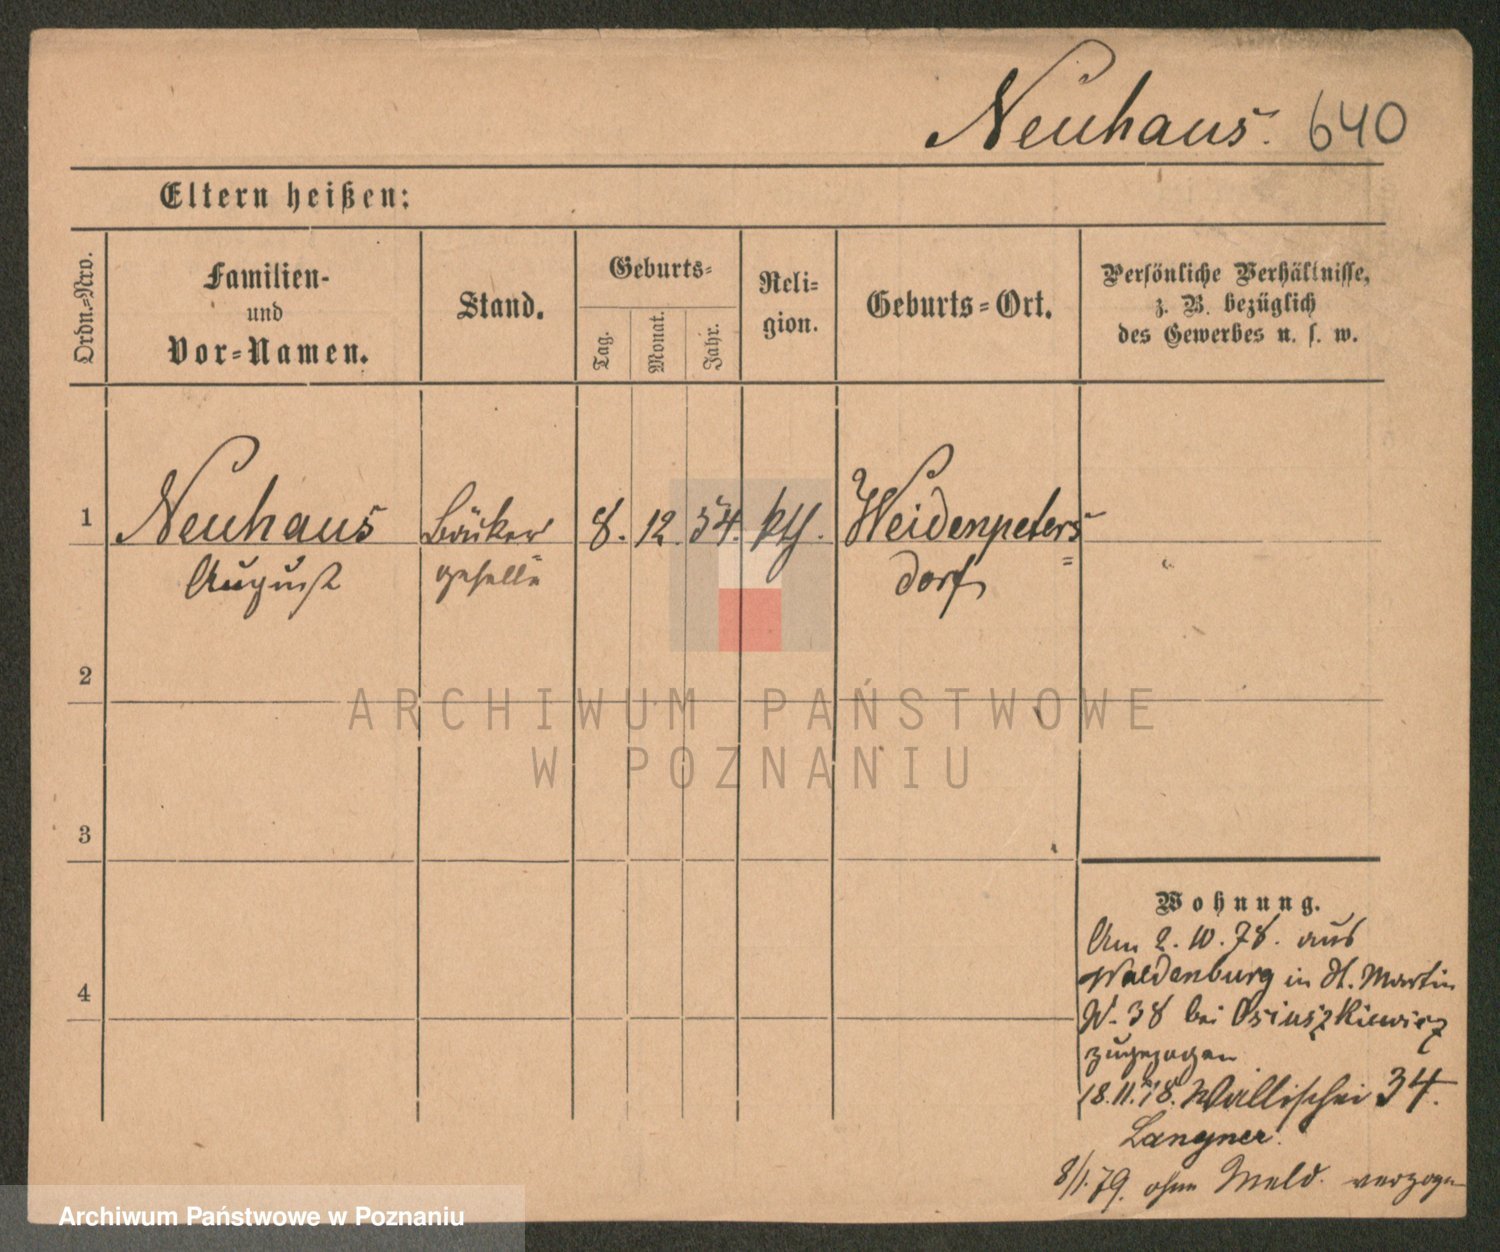 Neuhaus. 640
Eltern heißen:
Ordn.=Nro.
Familien-
und
Vor=Namen.
Stand.
Geburts=
Tag.
Monat.
Jahr.
Reli=
gion.
Geburts=Ort.
Persönliche Verhältnisse,
z. B. bezüglich
des Gewerbes u. s. w.
1
Neuhaus
August
Bäcker
geselle
8. 12. 54. kth.
Weidenpeters=
dorf
2
ARCHIWUM PAŃSTWOWE
W POZNANIU
3
4
Wohnung.
Am 2. 10. 78. aus
Waldenburg in St. Martin
N. 38 bei Osiuszkiewicz
zugezogen
18.11.78. Wallischei 34.
Langner.
8/1.79. ohne Meld. verzogen
Archiwum Państwowe w Poznaniu